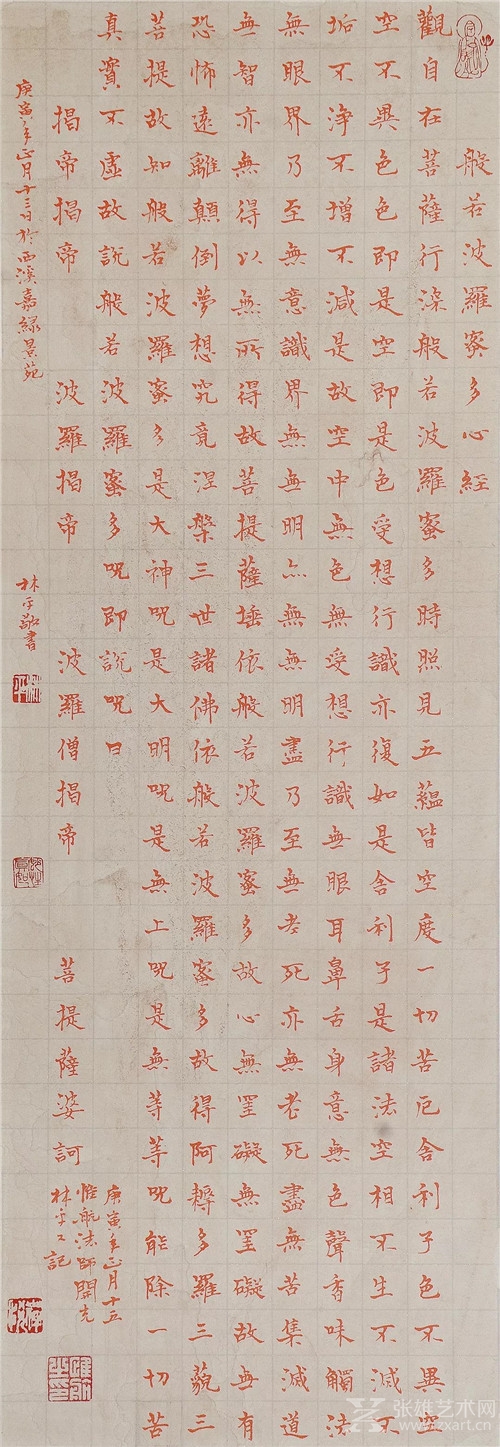 般若波羅蜜多心經
觀自在菩薩行深般若波羅蜜多時照見五蘊皆空度一切苦厄舍利子色不異空
空不異色色即是空即是色受想行識亦復如是舍利子是諸法空相不生不滅不
垢不淨不增不減是故空中無色無受想行識無眼耳鼻舌身意無色聲香味觸法
無眼界乃至無意識界無無明亦無無明盡乃至無老死亦無老死盡無苦集滅道
無智亦無得以無所得故菩提薩埵依般若波羅蜜多故心無罣礙無罣礙故無有
恐怖遠離顛倒夢想究竟涅槃三世諸佛依般若波羅蜜多故得阿耨多羅三藐三
菩提故知般若波羅蜜多是大神咒是大明咒是無上咒是無等等咒能除一切苦
真實不虛故說般若波羅蜜多咒即說咒曰
揭帝揭帝 波羅揭帝 波羅僧揭帝 菩提薩婆訶
庚寅年正月十五
航法師開光
林平又記
庚寅年正月十三日於西溪嘉綠景苑 林平敬書
张雄艺术网
www.zxart.cn